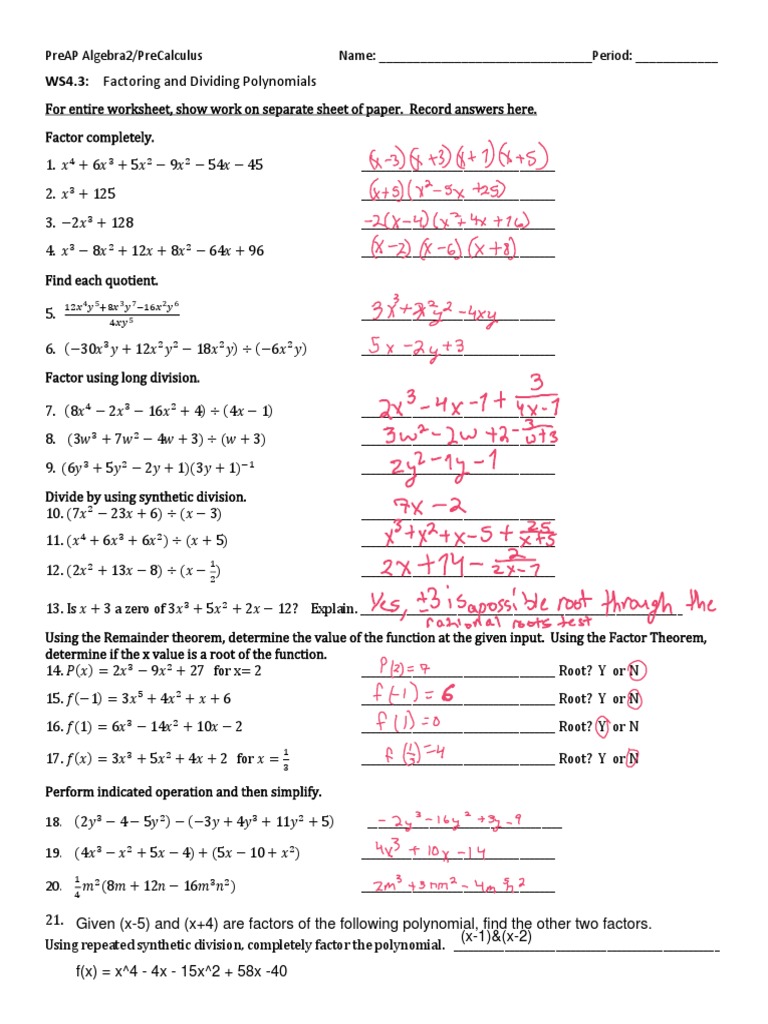 PreAP Algebra2/PreCalculus Name: ______________________________ Period: ____________
WS4.3: Factoring and Dividing Polynomials
For entire worksheet, show work on separate sheet of paper. Record answers here.
Factor completely.
1. x⁴ + 6x³ + 5x² − 9x² − 54x − 45 (x-3)(x+3)(x+1)(x+5)
2. x³ + 125 (x+5)(x²-5x+25)
3. −2x³ + 128 -2(x-4)(x²+4x+16)
4. x³ − 8x² + 12x + 8x² − 64x + 96 (x-2)(x-6)(x+8)
Find each quotient.
5. (12x⁴y⁵+8x³y⁷−16x²y⁶)/(4xy⁵) 3x³+2x²y²-4xy
6. (−30x³y + 12x²y² − 18x²y) ÷ (−6x²y) 5x-2y+3
Factor using long division.
7. (8x⁴ − 2x³ − 16x² + 4) ÷ (4x − 1) 2x³-4x-1+3/(4x-1)
8. (3w³ + 7w² − 4w + 3) ÷ (w + 3) 3w²-2w+2-3/(w+3)
9. (6y³ + 5y² − 2y + 1)(3y + 1)⁻¹ 2y²-1y-1
Divide by using synthetic division.
10. (7x² − 23x + 6) ÷ (x − 3) 7x-2
11. (x⁴ + 6x³ + 6x²) ÷ (x + 5) x³+x²+x-5+25/(x+5)
12. (2x² + 13x − 8) ÷ (x − 1/2) 2x+14-2/(2x-1)
13. Is x + 3 a zero of 3x³ + 5x² + 2x − 12? Explain. Yes, ±3 is a possible root through the
rational roots test
Using the Remainder theorem, determine the value of the function at the given input. Using the Factor Theorem,
determine if the x value is a root of the function.
14. P(x) = 2x³ − 9x² + 27 for x= 2 P(2)=7 Root? Y or N
15. f(−1) = 3x⁵ + 4x² + x + 6 f(-1)=6 Root? Y or N
16. f(1) = 6x³ − 14x² + 10x − 2 f(1)=0 Root? Y or N
17. f(x) = 3x³ + 5x² + 4x + 2 for x = 1/3 f(1/3)=4 Root? Y or N
Perform indicated operation and then simplify.
18. (2y³ − 4 − 5y²) − (−3y + 4y³ + 11y² + 5) -2y³-16y²+3y-9
19. (4x³ − x² + 5x − 4) + (5x − 10 + x²) 4x³+10x-14
20. 1/4 m²(8m + 12n − 16m³n²) 2m³+3nm²-4m⁵n²
21. Given (x-5) and (x+4) are factors of the following polynomial, find the other two factors.
Using repeated synthetic division, completely factor the polynomial. (x-1)&(x-2)
f(x) = x^4 - 4x - 15x^2 + 58x -40